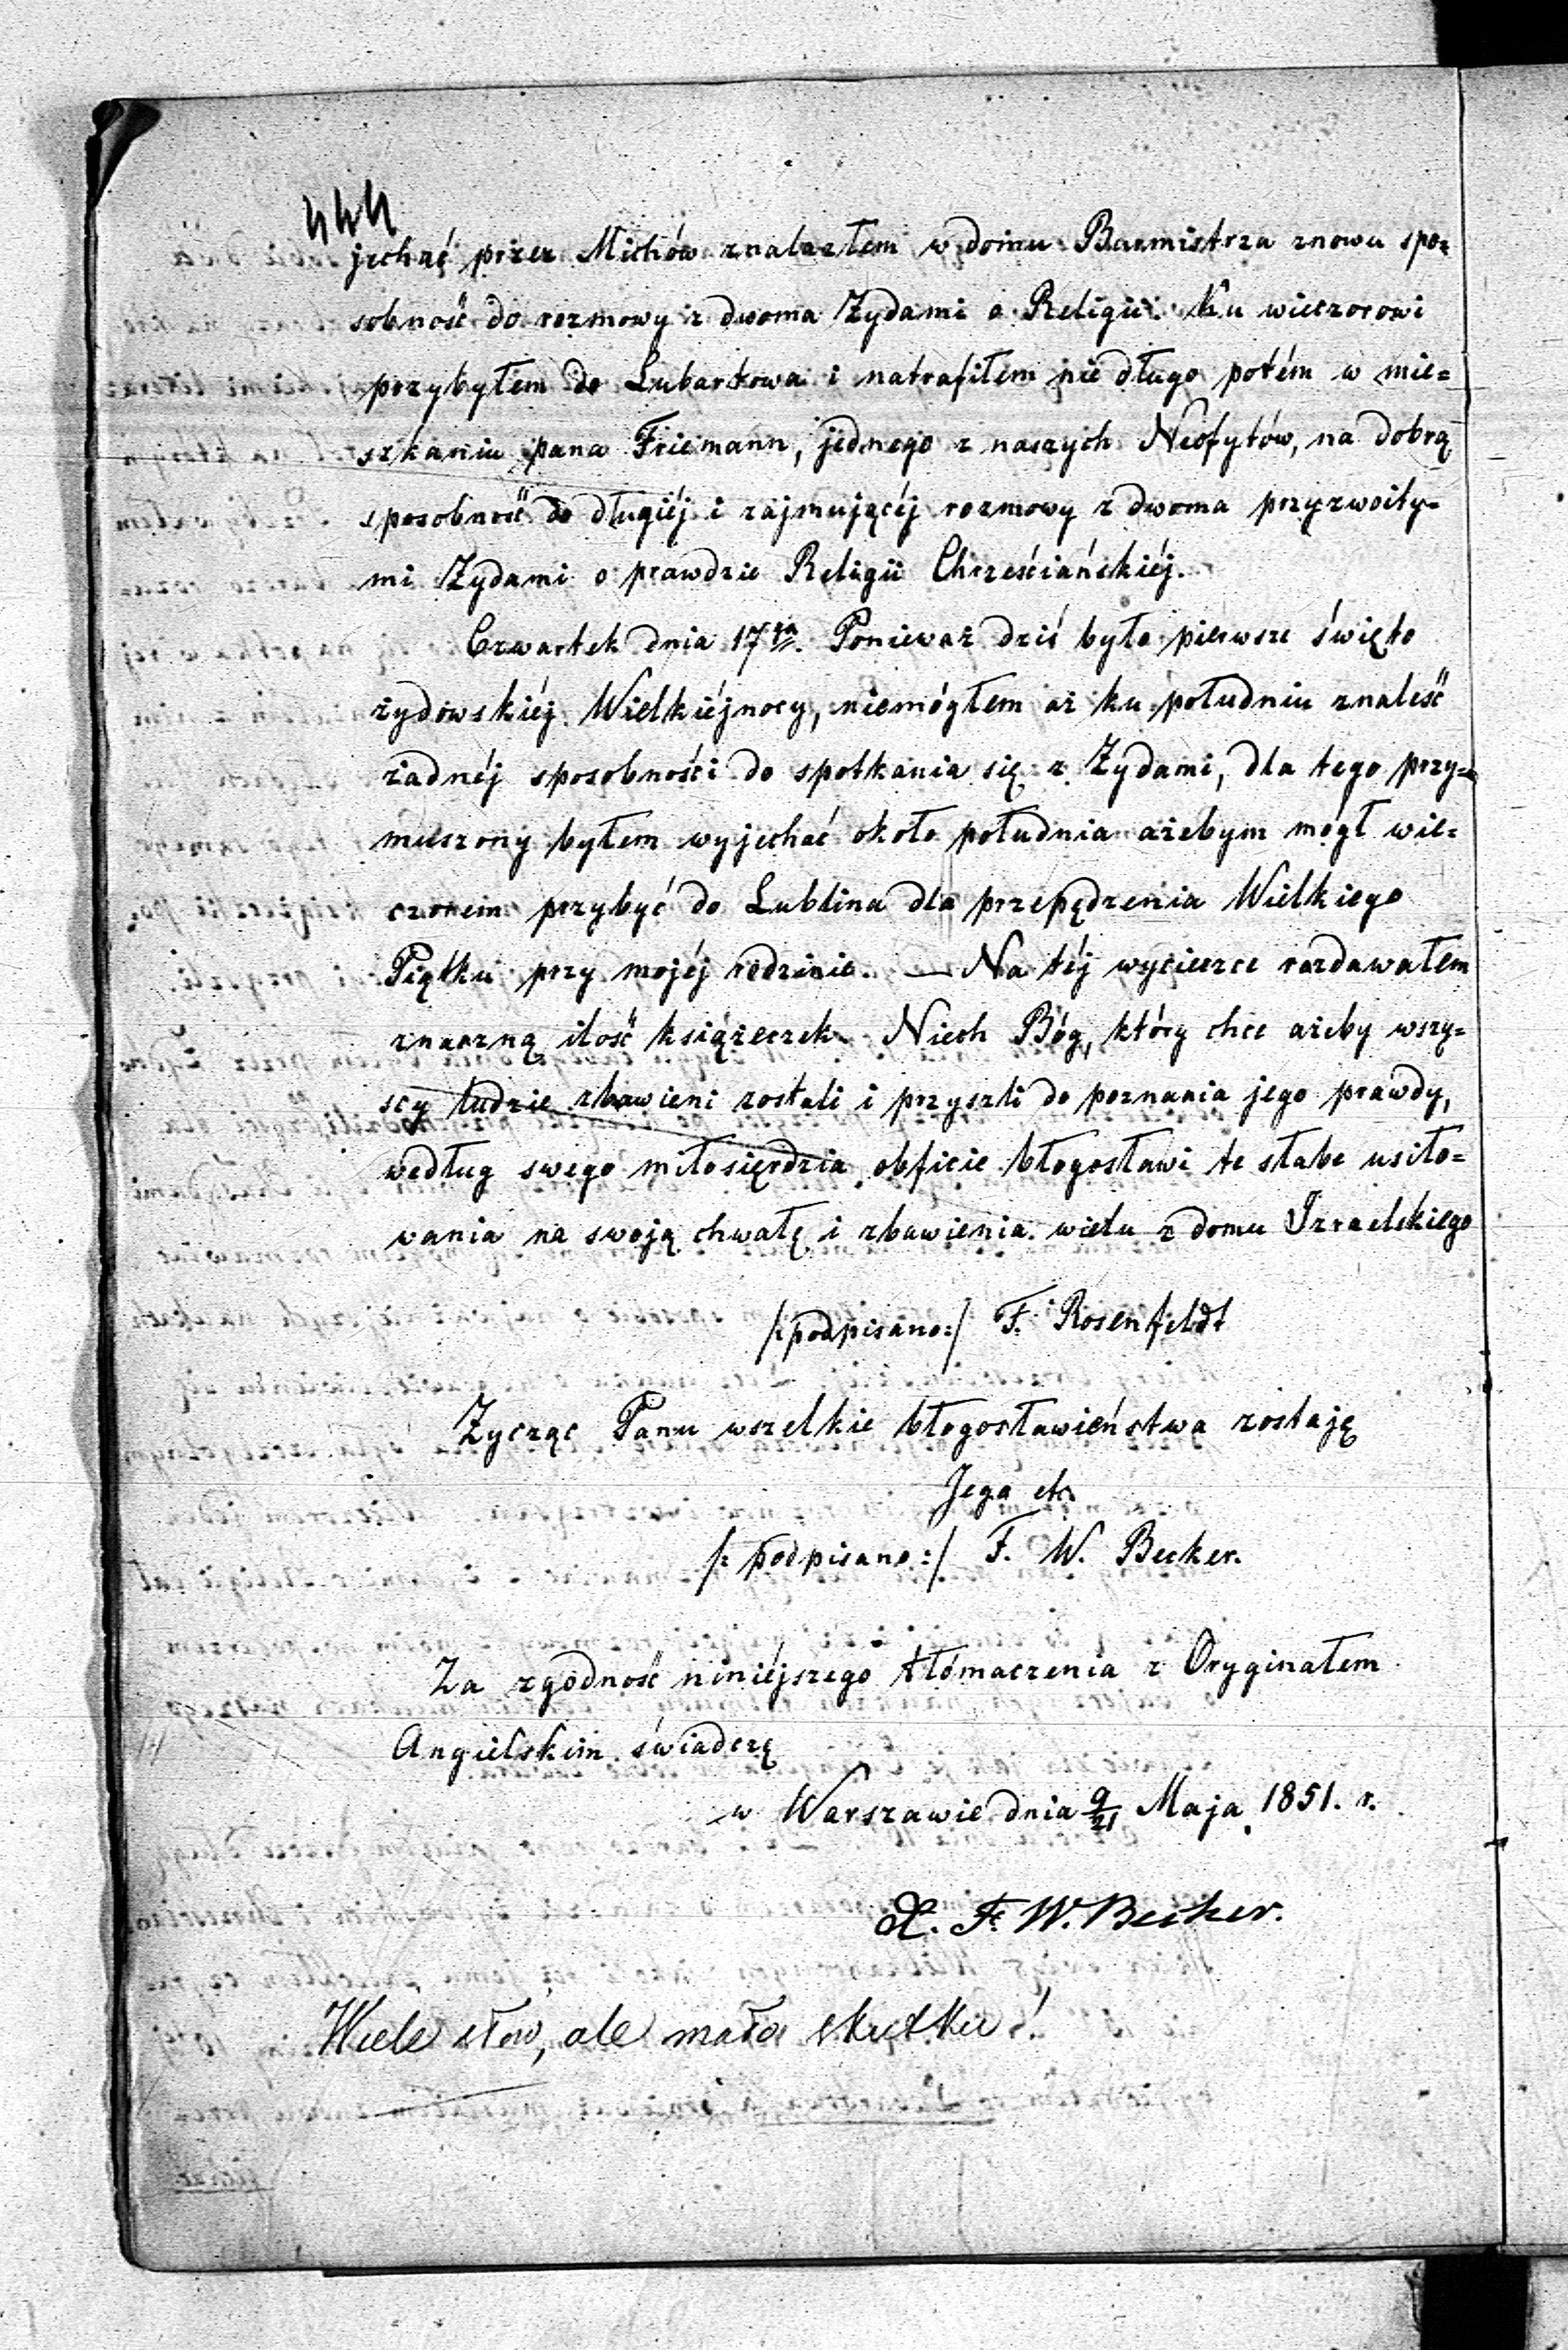 444
jechać przez Michów znalazłem w domu Burmistrza znowu spo=
sobność do rozmowy z dwoma Żydami o Religii. Ku wieczorowi
przybyłem do Lubartowa i natrafiłem nie długo potém w mie=
szkaniu pana Friemann, jednego z naszych Neofytów, na dobrą
sposobność do długiéj i zajmującéj rozmowy z dwoma przyzwoity=
mi Żydami o prawdzie Religii Chrześciańskiéj.
Czwartek dnia 17go. Ponieważ dziś było pierwsze święto
żydowskiéj Wielkiéjnocy, niemógłem aż ku południu znaleść
żadnéj sposobności do spotkania się z Żydami, dla tego przy=
muszony byłem wyjechać około południa ażebym mógł wie=
czorem przybyć do Lublina dla przepędzenia Wielkiego
Piątku przy mojéj rodzinie. — Na téj wycieczce rozdawałem
znaczną ilość książeczek. Niech Bóg, który chce ażeby wszy=
scy ludzie zbawieni zostali i przyszli do poznania jego prawdy,
według swego miłosierdzia obficie błogosławi te słabe usiło=
wania na swoją chwałę i zbawienia wielu z domu Izraelskiego
/:podpisano:/ F. Rosenfeldt
Życząc Panu wszelkie błogosławieństwa zostaję
Jego etc
/:podpisano:/ F. W. Becker.
Za zgodność niniéjszego tłómaczenia z Oryginałem
Angielskim świadczę
w Warszawie dnia 9/21 Maja 1851. r.
X. F. W. Becker.
Wiele słów, ale mało skutku!